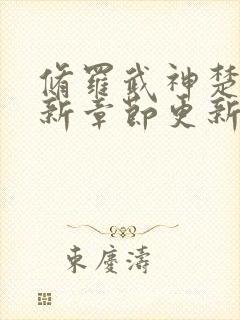 脩羅武神楚
新章節更新
東慶濤